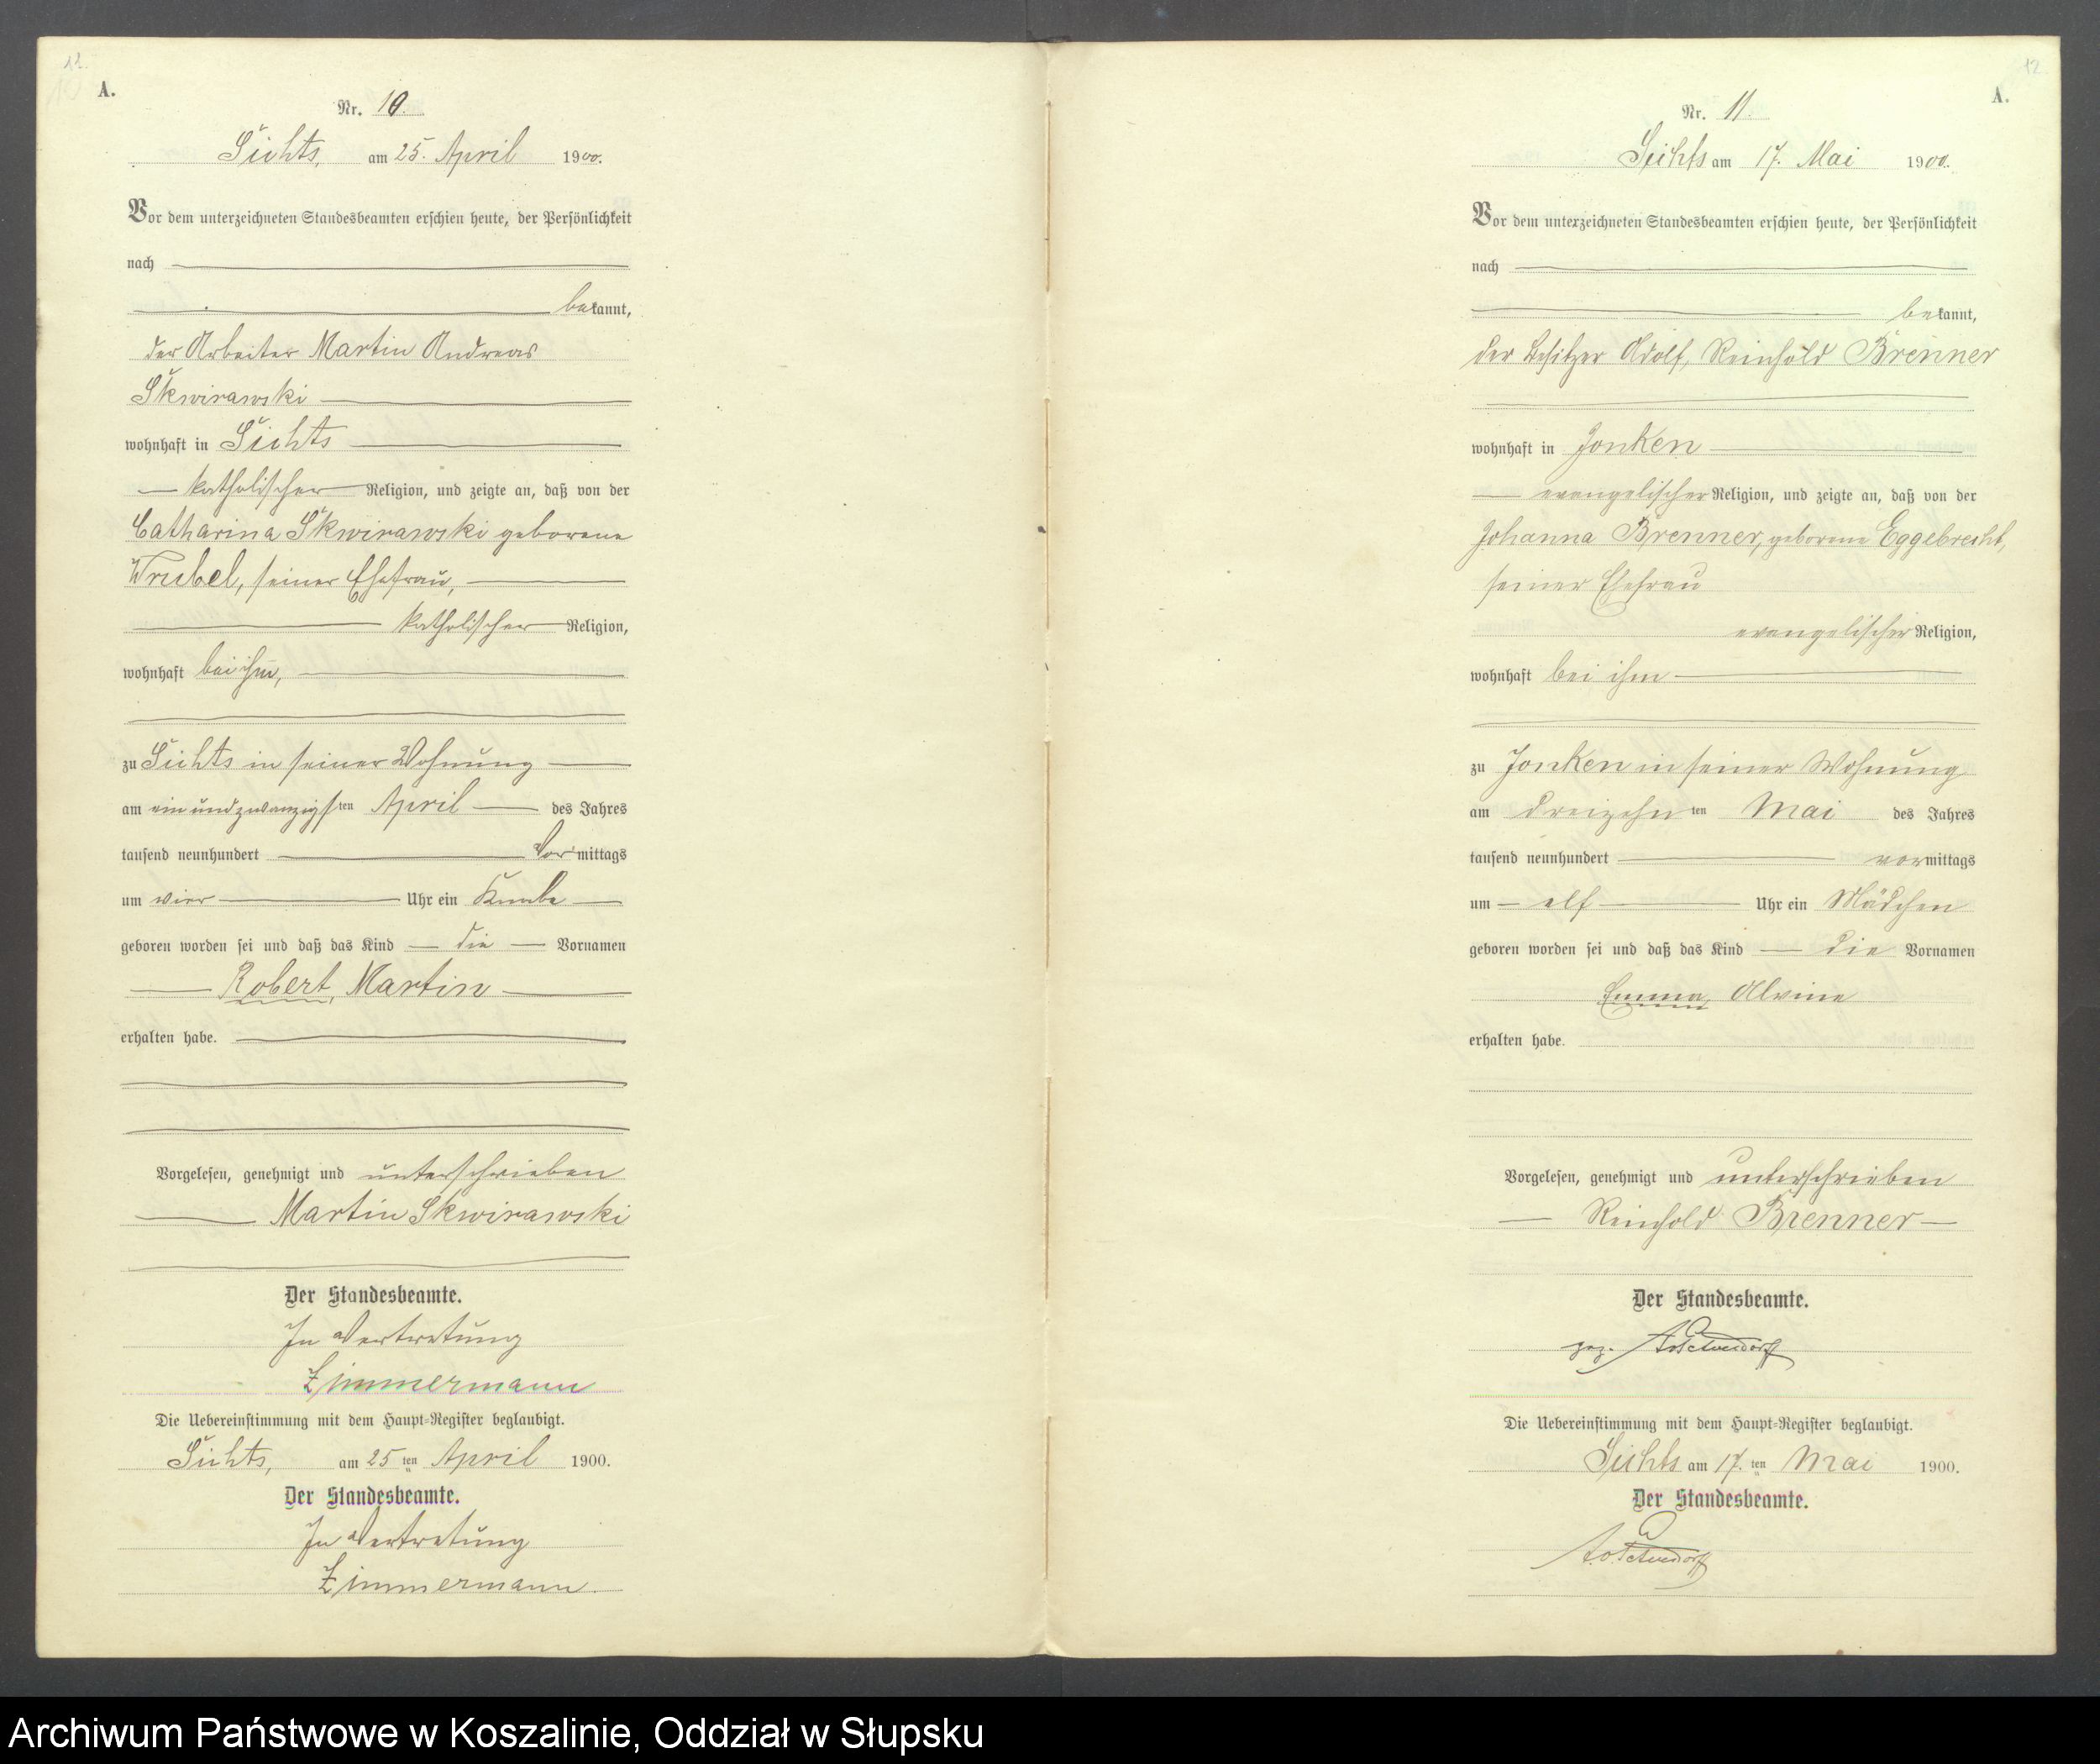 11.
A.
Nr. 10.
Sichts, am 25. April 1900.
Vor dem unterzeichneten Standesbeamten erschien heute, der Persönlichkeit
nach
bekannt,
der Arbeiter Martin Andreas
Skwirawski
wohnhaft in Sichts
katholischer Religion, und zeigte an, daß von der
Catharina Skwirawski geborene
Wrubel, seiner Ehefrau,
katholischer Religion,
wohnhaft bei ihm,
zu Sichts in seiner Wohnung
am ein und zwanzigsten April des Jahres
tausend neunhundert Vormittags
um vier Uhr ein Knabe
geboren worden sei und daß das Kind die Vornamen
Robert, Martin
erhalten habe.
Vorgelesen, genehmigt und unterschrieben
Martin Skwirawski
Der Standesbeamte.
In Vertretung
Zimmermann
Die Uebereinstimmung mit dem Haupt-Register beglaubigt.
Sichts, am 25 ten April 1900.
Der Standesbeamte.
In Vertretung
Zimmermann.
12.
A.
Nr. 11.
Sichts am 17. Mai 1900.
Vor dem unterzeichneten Standesbeamten erschien heute, der Persönlichkeit
nach
bekannt,
der Besitzer Adolf, Reinhold Brenner
wohnhaft in Jonken
evangelischer Religion, und zeigte an, daß von der
Johanna Brenner, geborene Eggebrecht,
seiner Ehefrau
evangelischer Religion,
wohnhaft bei ihm
zu Jonken in seiner Wohnung
am dreizehnten Mai des Jahres
tausend neunhundert vormittags
um elf Uhr ein Mädchen
geboren worden sei und daß das Kind die Vornamen
Emma, Alvine
erhalten habe.
Vorgelesen, genehmigt und unterschrieben
Reinhold Brenner
Der Standesbeamte.
gez.
Die Uebereinstimmung mit dem Haupt-Register beglaubigt.
Sichts am 17. ten Mai 1900.
Der Standesbeamte.
Archiwum Państwowe w Koszalinie, Oddział w Słupsku